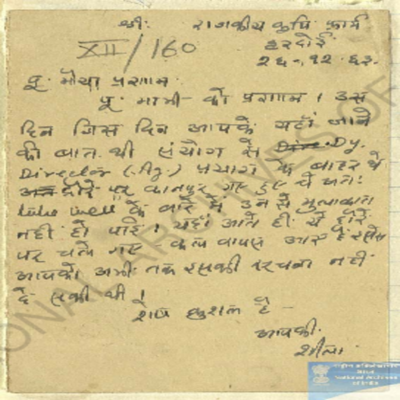 श्रीः राजकीय कृषि फार्म
XII/160 हरदोई
26-12-63.
पू. भैया प्रणाम.
पू. भाभी को प्रणाम । उस
दिन जिस दिन आपके यहाँ जाने
की बात थी संयोग से Dy.
Director (Ag.) प्रयाग के बाहर थे
दौरे पर कानपुर गए हुए थे अतः
tube well के बारे में उनसे मुलाकात
नहीं हो पाई । यहाँ आते ही ये दौरे
पर चले गए कल वापस आए हैं इससे
आपको अभी तक इसकी सूचना नहीं
दे सकी थी ।
शेष कुशल है -
आपकी
शीला